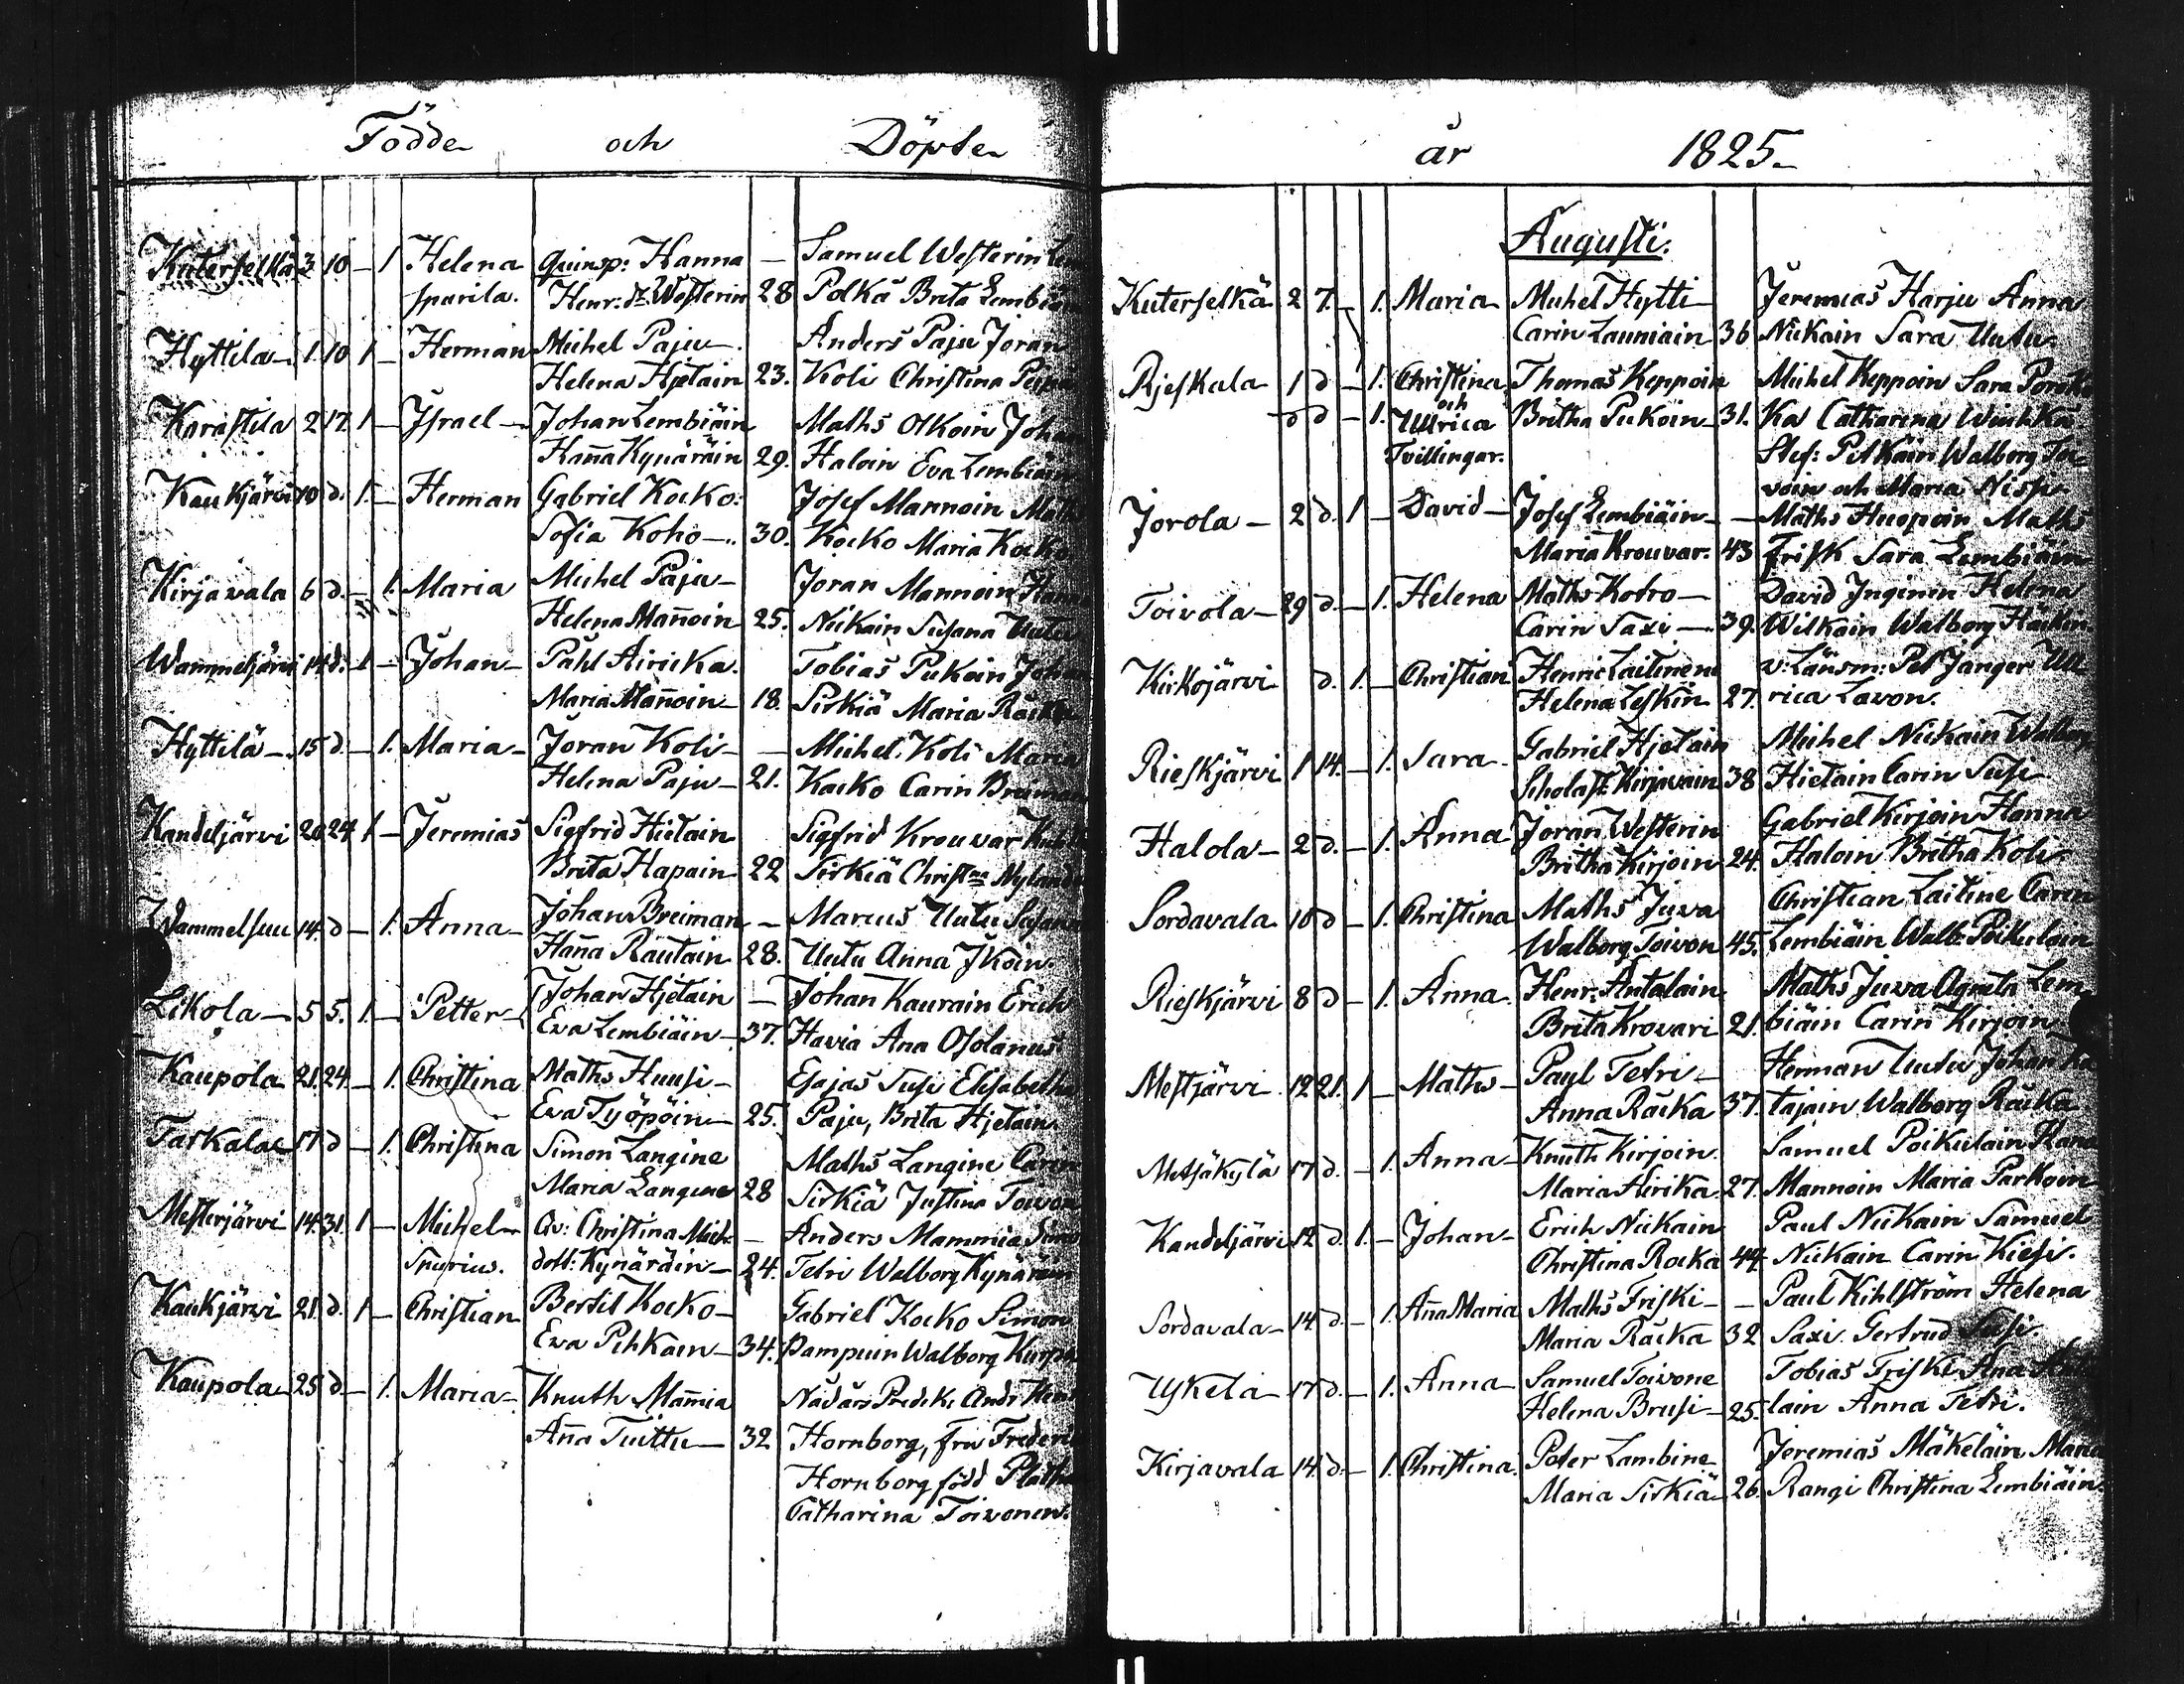 Födde och Döpte
Kuterselkä 3 10 – 1 Helena Quinsp: Hanna – Samuel Westerin
sparila. Henr: dr Westerin 28 Polkä Brita
Hyttila – 1 10 1 – Herman Michel Paju – Anders Paju Joran
Helena Hjetain 23. Koli Christina
Karastila 2 17. 1 – Israel – Johan Lembiäin Maths Olkoin Johan
Hana Kynäräin 29. Haloin Eva Lembiäin
Kaukjärvi 10 d. 1. – Herman Gabriel Kocko. Josef Mannoin
Sofia Koho – 30. Kocko Maria Kocko
Kirjavala 6 d. – 1. Maria Michel Paju – Joran Mannoin
Helena Manoin 25. Nikain Susana Uutu
Wammeljärvi 14 d. 1 – Johan – Påhl Airicka. Tobias Pukoin Johan
Maria Manoin – 18. Sirkiä Maria
Hyttilä – 15 d. – 1. Maria – Joran Koli – – Michel Koli Maria
Helena Paju – 21. Kocko Carin
Kandeljärvi 20 24 1 – Jeremias Sigfrid Hietain Sigfrid Krouvar
Brita Hapain 22 Sirkiä Christna
Wammelsuu 14. d – 1. Anna – Johan Breiman – Marcus Uutu
Hana Rautain 28. Uutu Anna Ikoin.
Likola – 5 5. 1. – Petter – Johan Hjetain – Johan Kaurain Erich
Eva Lembiäin – 37. Havia Ana
Kaupola 21. 24 – 1. Christina Maths Huusi – Esajas Susi Elisabetha
Eva Työpöin – 25. Paju, Brita Hjetain.
Tarkala 17 d – 1. Christina Simon Langine Maths Langine Carin
Maria Langine 28 Sirkiä Justina
Mesterjärvi 14. 31. 1 – Michel – Qv: Christina Mich – Anders Mammia
Spurius. dott: Kynäräin – 24. Tetri Walborg
Kaukjärvi 21. d. 1 – Christian Bertil Kocko – Gabriel Kocko Simon
Eva Pihkain – 34. Pampuin Walborg
Kaupola 25 d – 1. Maria – Knuth Mamia Nådårs Predik:
Ana Tuittu – 32 Hornborg, fru
Hornborg född
Catharina Toivonen.
år 1825
Augusti.
Kuterselkä 2 7. – 1. Maria Michel Hytti – Jeremias Harju Anna
Carin Launiain 36 Nickain Sara Uutu.
Rjeskala 1 d – 1. Christina Thomas Keppoin Michel Keppoin Sara
d d – 1. och Ullrica Britha Pukoin 31. Ka Catharina
Tvillingar. Stef: Pitkäin Walborg Toi
voin och Maria
Jorola – 2 d. 1 – David – Josef Lembiäin – – Maths Huopoin Maths
Maria Krouvar. 43 Frisk Sara Lembiäin
Toivola – 29 d. – 1. Helena Maths Kotro – David Inginen Helena
Carin Saxi – 39. Wilkain Walborg
Kirkojärvi d. 1. – Christian Henric Laitinen v: Länsm: Pet Janger Ull
Helena Leskin 27. rica Lavon.
Rieskjärvi 1 14. – 1. Sara Gabriel Hjetain Michel Nickain Walborg
Scholast: Kirjavain 38 Hietain Carin Susi
Halola – 2 d. – 1. Anna Joran Westerin Gabriel Kirjoin Hanna
Britha Kirjoin 24. Haloin Britha Koli
Sordavala 10 d – 1. Christina Maths Juva Christian Laitine Carin
Walborg Toivon 45. Lembiäin Walb: Poikulain
Rieskjärvi 8 d – 1. Anna. Henr: Antalain Maths Juva Agneta Lem
Brita Krovari 21. biäin Carin Kirjoin
Mestjärvi 12 21. 1 – Maths – Paul Tetri – Herman Uutu Johan
Anna Räcka 37. tajain Walborg Räcka
Metsäkylä 17 d. – 1. Anna – Knuth Kirjoin. Samuel Poikulain
Maria Airika 27. Mannoin Maria Parkoin
Kandeljärvi 12 d. 1. – Johan – Erich Nickain Paul Nickain Samuel
Christina Rocka 44. Nickain Carin Kiesi.
Sordavala – 14 d. – 1. Ana Maria Maths Friski – – Paul Kihlström Helena
Maria Räcka 32 Saxi. Gertrud Susi.
Uykelä 17 d. – 1. Anna – Samuel Toivone Tobias Friski Ana
Helena Brusi – 25. lain Anna Tetri.
Kirjavala 14. d. – 1. Christina. Peter Lambine Jeremias Mäkeläin Maria
Maria Sirkiä – 26. Rangi Christina Lembiäin.